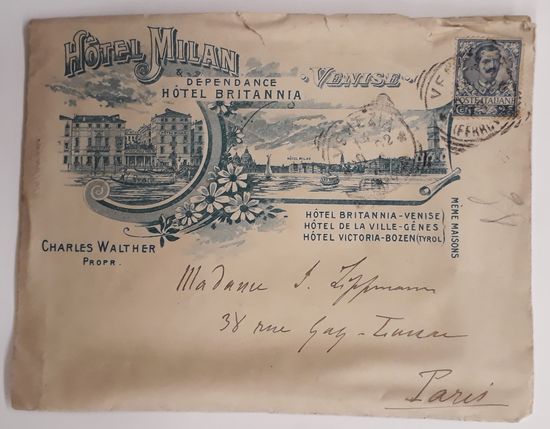 HÔTEL MILAN
& DEPENDANCE
HÔTEL BRITANNIA
VENISE
POSTE ITALIANE
HÔTEL MILAN
HÔTEL BRITANNIA-VENISE
HÔTEL DE LA VILLE-GÊNES
HÔTEL VICTORIA-BOZEN (TYROL)
MÊME MAISONS
CHARLES WALTHER
PROPR.
Madame J. Lippmann
38 rue Gay-Lussac
Paris